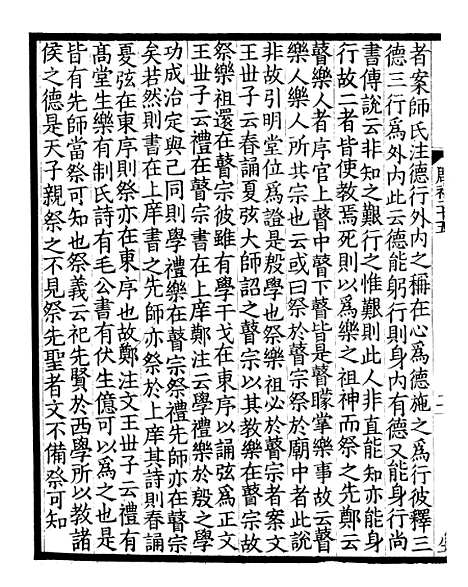 者案師氏注德行外内之稱在心爲德施之爲行彼釋三
德三行爲外内此云德能躬行則身内有德又能身行尚
書傳說云非知之艱行之惟艱則此人非直能知亦能身
行故二者皆使教焉死則以爲樂之祖神而祭之先鄭云
瞽樂人者序官上瞽中瞽下瞽皆是瞽矇掌樂事故云瞽
樂人樂人所共宗也云或曰祭於瞽宗祭於廟中者此說
非故引明堂位爲證是殷學也祭樂祖必於瞽宗者案文
王丗子云春誦夏弦大師詔之瞽宗以其教樂在瞽宗故
祭樂祖還在瞽宗彼雖有學干戈在東序以誦弦爲正文
王丗子云禮在瞽宗書在上庠鄭注云學禮樂於殷之學
功成治定與己同則學禮樂在瞽宗祭禮先師亦在瞽宗
矣若然則書在上庠書之先師亦祭於上庠其詩則春誦
夏弦在東序則祭亦在東序也故鄭注文王丗子云禮有
髙堂生樂有制氏詩有毛公書有伏生億可以爲之也是
皆有先師當祭可知也祭義云祀先賢於西學所以教諸
侯之德是天子親祭之不見祭先聖者文不備祭可知